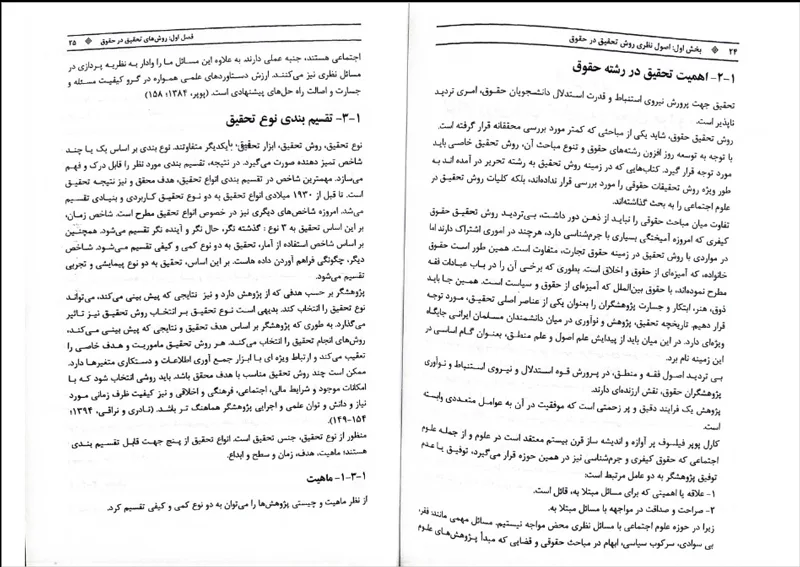 ۲۴ بخش اول: اصول نظری روش تحقیق در حقوق
۱-۲- اهمیت تحقیق در رشته حقوق
تحقیق جهت پرورش نیروی استنباط و قدرت استدلال دانشجویان حقوق، امری تردید
ناپذیر است.
روش تحقیق حقوق، شاید یکی از مباحثی که کمتر مورد بررسی محققانه قرار گرفته است.
با توجه به توسعه روز افزون رشته‌های حقوق و تنوع مباحث آن، روش تحقیق خاصی باید
مورد توجه قرار گیرد. کتاب‌هایی که در زمینه روش تحقیق به رشته تحریر در آمده اند به
طور ویژه روش تحقیقات حقوقی را مورد بررسی قرار نداده‌اند، بلکه کلیات روش تحقیق در
علوم اجتماعی را به بحث گذاشته‌اند.
تفاوت میان مباحث حقوقی را نباید از ذهن دور داشت، بی‌تردید روش تحقیق حقوق
کیفری که امروزه آمیختگی بسیاری با جرم‌شناسی دارد، هرچند در اموری اشتراک دارند اما
در مواردی با روش تحقیق در زمینه حقوق تجارت، متفاوت است. همین طور است حقوق
خانواده، که آمیزه‌ای از حقوق و اخلاق است. بطوری که برخی آن را در باب عبادات فقه
مطرح نموده‌اند، با حقوق بین‌الملل که آمیزه‌ای از حقوق و سیاست است. همین جا باید
ذوق، هنر، ابتکار و جسارت پژوهشگران را بعنوان یکی از عناصر اصلی تحقیق، مورد توجه
قرار دهیم. تاریخچه تحقیق، پژوهش و نوآوری در میان دانشمندان مسلمان ایرانی جایگاه
ویژه‌ای دارد. در این میان باید از پیدایش علم اصول و علم منطق، بعنوان گام اساسی در
این زمینه نام برد.
بی تردید اصول فقه و منطق، در پرورش قوه استدلال و نیروی استنباط و نوآوری
پژوهشگران حقوق، نقش ارزنده‌ای دارند.
پژوهش یک فرایند دقیق و پر زحمتی است که موفقیت در آن به عوامل متعددی وابسته
است.
کارل پوپر فیلسوف پر آوازه و اندیشه ساز قرن بیستم معتقد است در علوم و از جمله علوم
اجتماعی که حقوق کیفری و جرم‌شناسی نیز در همین حوزه قرار می‌گیرد، توفیق یا عدم
توفیق پژوهشگر به دو عامل مرتبط است:
۱- علاقه یا اهمیتی که برای مسائل مبتلا به، قائل است.
۲- صراحت و صداقت در مواجهه با مسائل مبتلا به.
زیرا در حوزه علوم اجتماعی با مسائل نظری محض مواجه نیستیم. مسائل مهمی مانند: فقر،
بی سوادی، سرکوب سیاسی، ابهام در مباحث حقوقی و قضایی که مبدأ پژوهش‌های علوم
فصل اول: روش‌های تحقیق در حقوق ۲۵
اجتماعی هستند، جنبه عملی دارند. به علاوه این مسائل ما را وادار به نظریه پردازی در
مسائل نظری نیز می‌کنند. ارزش دستاوردهای علمی همواره در گرو کیفیت مسئله و
جسارت و اصالت راه حل‌های پیشنهادی است. (پوپر، ۱۳۸۴: ۱۵۸)
۱-۳- تقسیم بندی نوع تحقیق
نوع تحقیق، روش تحقیق، ابزار تحقیق، بایکدیگر متفاوتند. نوع بندی بر اساس یک یا چند
شاخص تمیز دهنده صورت می‌گیرد. در نتیجه، تقسیم بندی مورد نظر را قابل درک و فهم
می‌سازد. مهمترین شاخص در تقسیم بندی انواع تحقیق، هدف محقق و نیز نتیجه تحقیق
است. تا قبل از ۱۹۳۰ میلادی انواع تحقیق به دو نوع تحقیق کاربردی و بنیادی تقسیم
می‌شد. امروزه شاخص‌های دیگری نیز در خصوص انواع تحقیق مطرح است. شاخص زمان،
بر این اساس تحقیق به ۳ نوع : گذشته نگر، حال نگر و آینده نگر تقسیم می‌شود. همچنین
بر اساس شاخص استفاده از آمار، تحقیق به دو نوع کمی و کیفی تقسیم می‌شود. شاخص
دیگر، چگونگی فراهم آوردن داده هاست. بر این اساس، تحقیق به دو نوع پیمایشی و تجربی
تقسیم می‌شود.
پژوهشگر بر حسب هدفی که از پژوهش دارد و نیز نتایجی که پیش بینی می‌کند، می‌تواند
نوع تحقیق را انتخاب کند. بدیهی است نوع تحقیق بر انتخاب روش تحقیق نیز تاثیر
می‌گذارد. به طوری که پژوهشگر بر اساس هدف تحقیق و نتایجی که پیش بینی می‌کند،
روش‌های انجام تحقیق را انتخاب می‌کند. هر روش تحقیق ماموریت و هدف خاصی را
تعقیب می‌کند و ارتباط ویژه ای با ابزار جمع آوری اطلاعات و دستکاری متغیرها دارد.
ممکن است چند روش تحقیق مناسب با هدف محقق باشد. باید روشی انتخاب شود که با
امکانات موجود و شرایط مالی، اجتماعی، فرهنگی و اخلاقی و نیز کیفیت ظرف زمانی مورد
نیاز و دانش و توان علمی و اجرایی پژوهشگر هماهنگ تر باشد. (نادری و نراقی، ۱۳۹۴:
۱۴۹-۱۵۴).
منظور از نوع تحقیق، جنس تحقیق است. انواع تحقیق از پنج جهت قابل تقسیم بندی
هستند؛ ماهیت، هدف، زمان و سطح و ابداع.
۱-۳-۱- ماهیت
از نظر ماهیت و چیستی پژوهش‌ها را می‌توان به دو نوع کمی و کیفی تقسیم کرد.